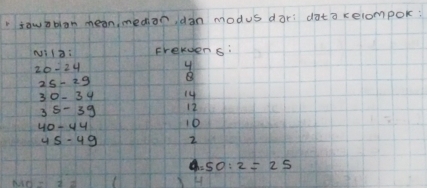 Jawablah mean, median, dan modus dari data kelompok:
Nilai Frekuensi
20-24 4
25-29 8
30-34 14
35-39 12
40-44 10
45-49 2
50:2 = 25